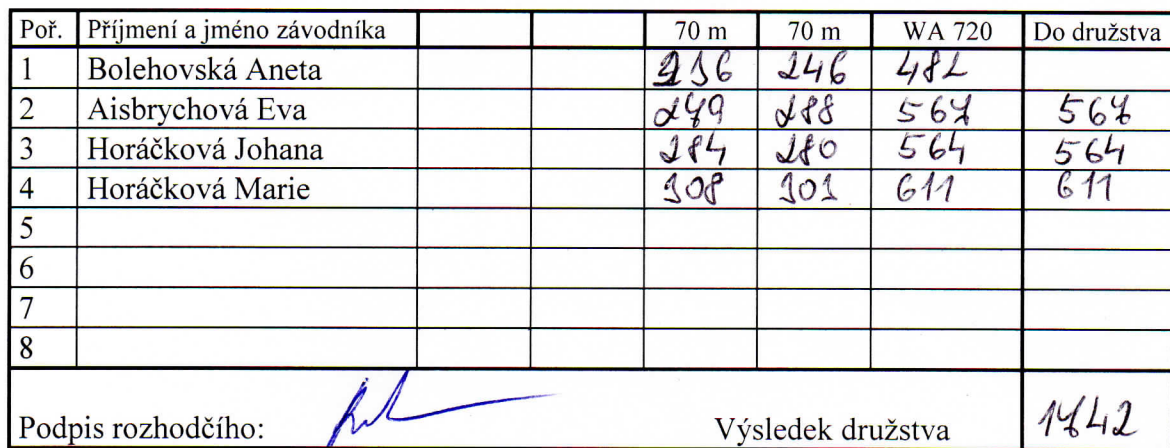 Poř. Příjmení a jméno závodníka 70 m 70 m WA 720 Do družstva
1 Bolehovská Aneta 236 246 482
2 Aisbrychová Eva 279 288 567 567
3 Horáčková Johana 284 280 564 564
4 Horáčková Marie 308 303 611 611
5
6
7
8
Podpis rozhodčího: Výsledek družstva 1742